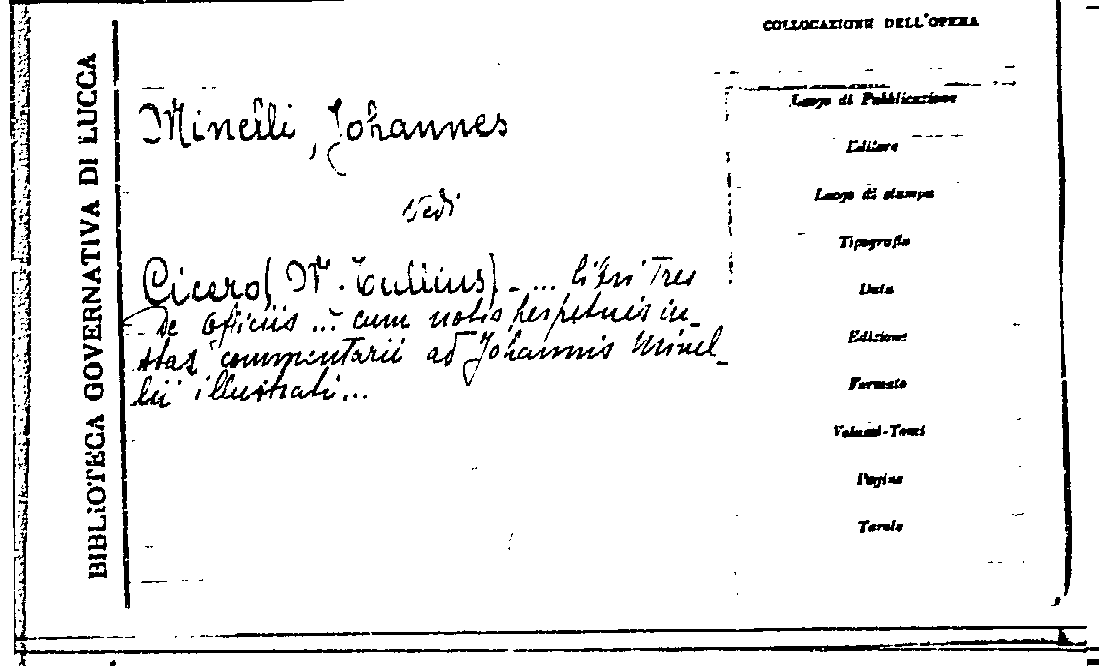 BIBLIOTECA GOVERNATIVA DI LUCCA
COLLOCAZIONE DELL'OPERA
Minelli, Johannes
vedi
Cicero( M. Tullius) - ... libri tres
de officiis ... cum notis perpetuis in-
star commentarii ad Johannis Minel-
lii illustrati...
Luogo di Pubblicazione
Editore
Luogo di stampa
Tipografia
Data
Edizione
Formato
Volumi-Tomi
Pagine
Tavole